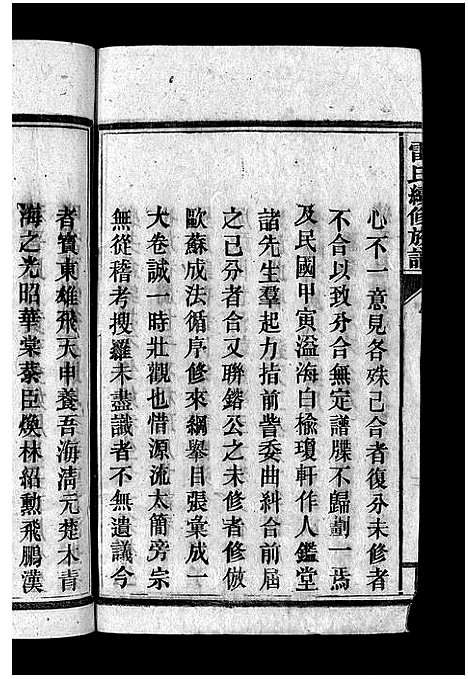 雷氏續修族譜
心不一意見各殊已合者復分未修者
不合以致分合無定譜牒不歸劃一焉
及民國甲寅溢海白榆瓊軒作人鑑堂
諸先生羣起力指前訾委曲糾合前屆
之已分者合又聯鍇公之未修者修倣
歐蘇成法循序修來綱舉目張彙成一
大卷誠一時壯觀也惜源流太簡旁宗
無從稽考搜羅未盡識者不無遺議今
者賓東雄飛天申養吾海清元楚木青
海之光昭華棠蔡臣煥林紹勲飛鵬漢